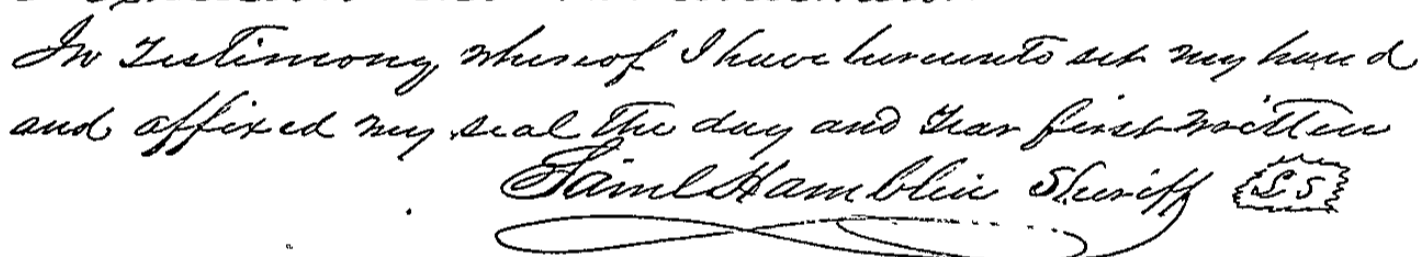 In Testimony whereof I have hereunto set my hand
and affixed my seal the day and Year first written
Saml Hamblin Sheriff LS